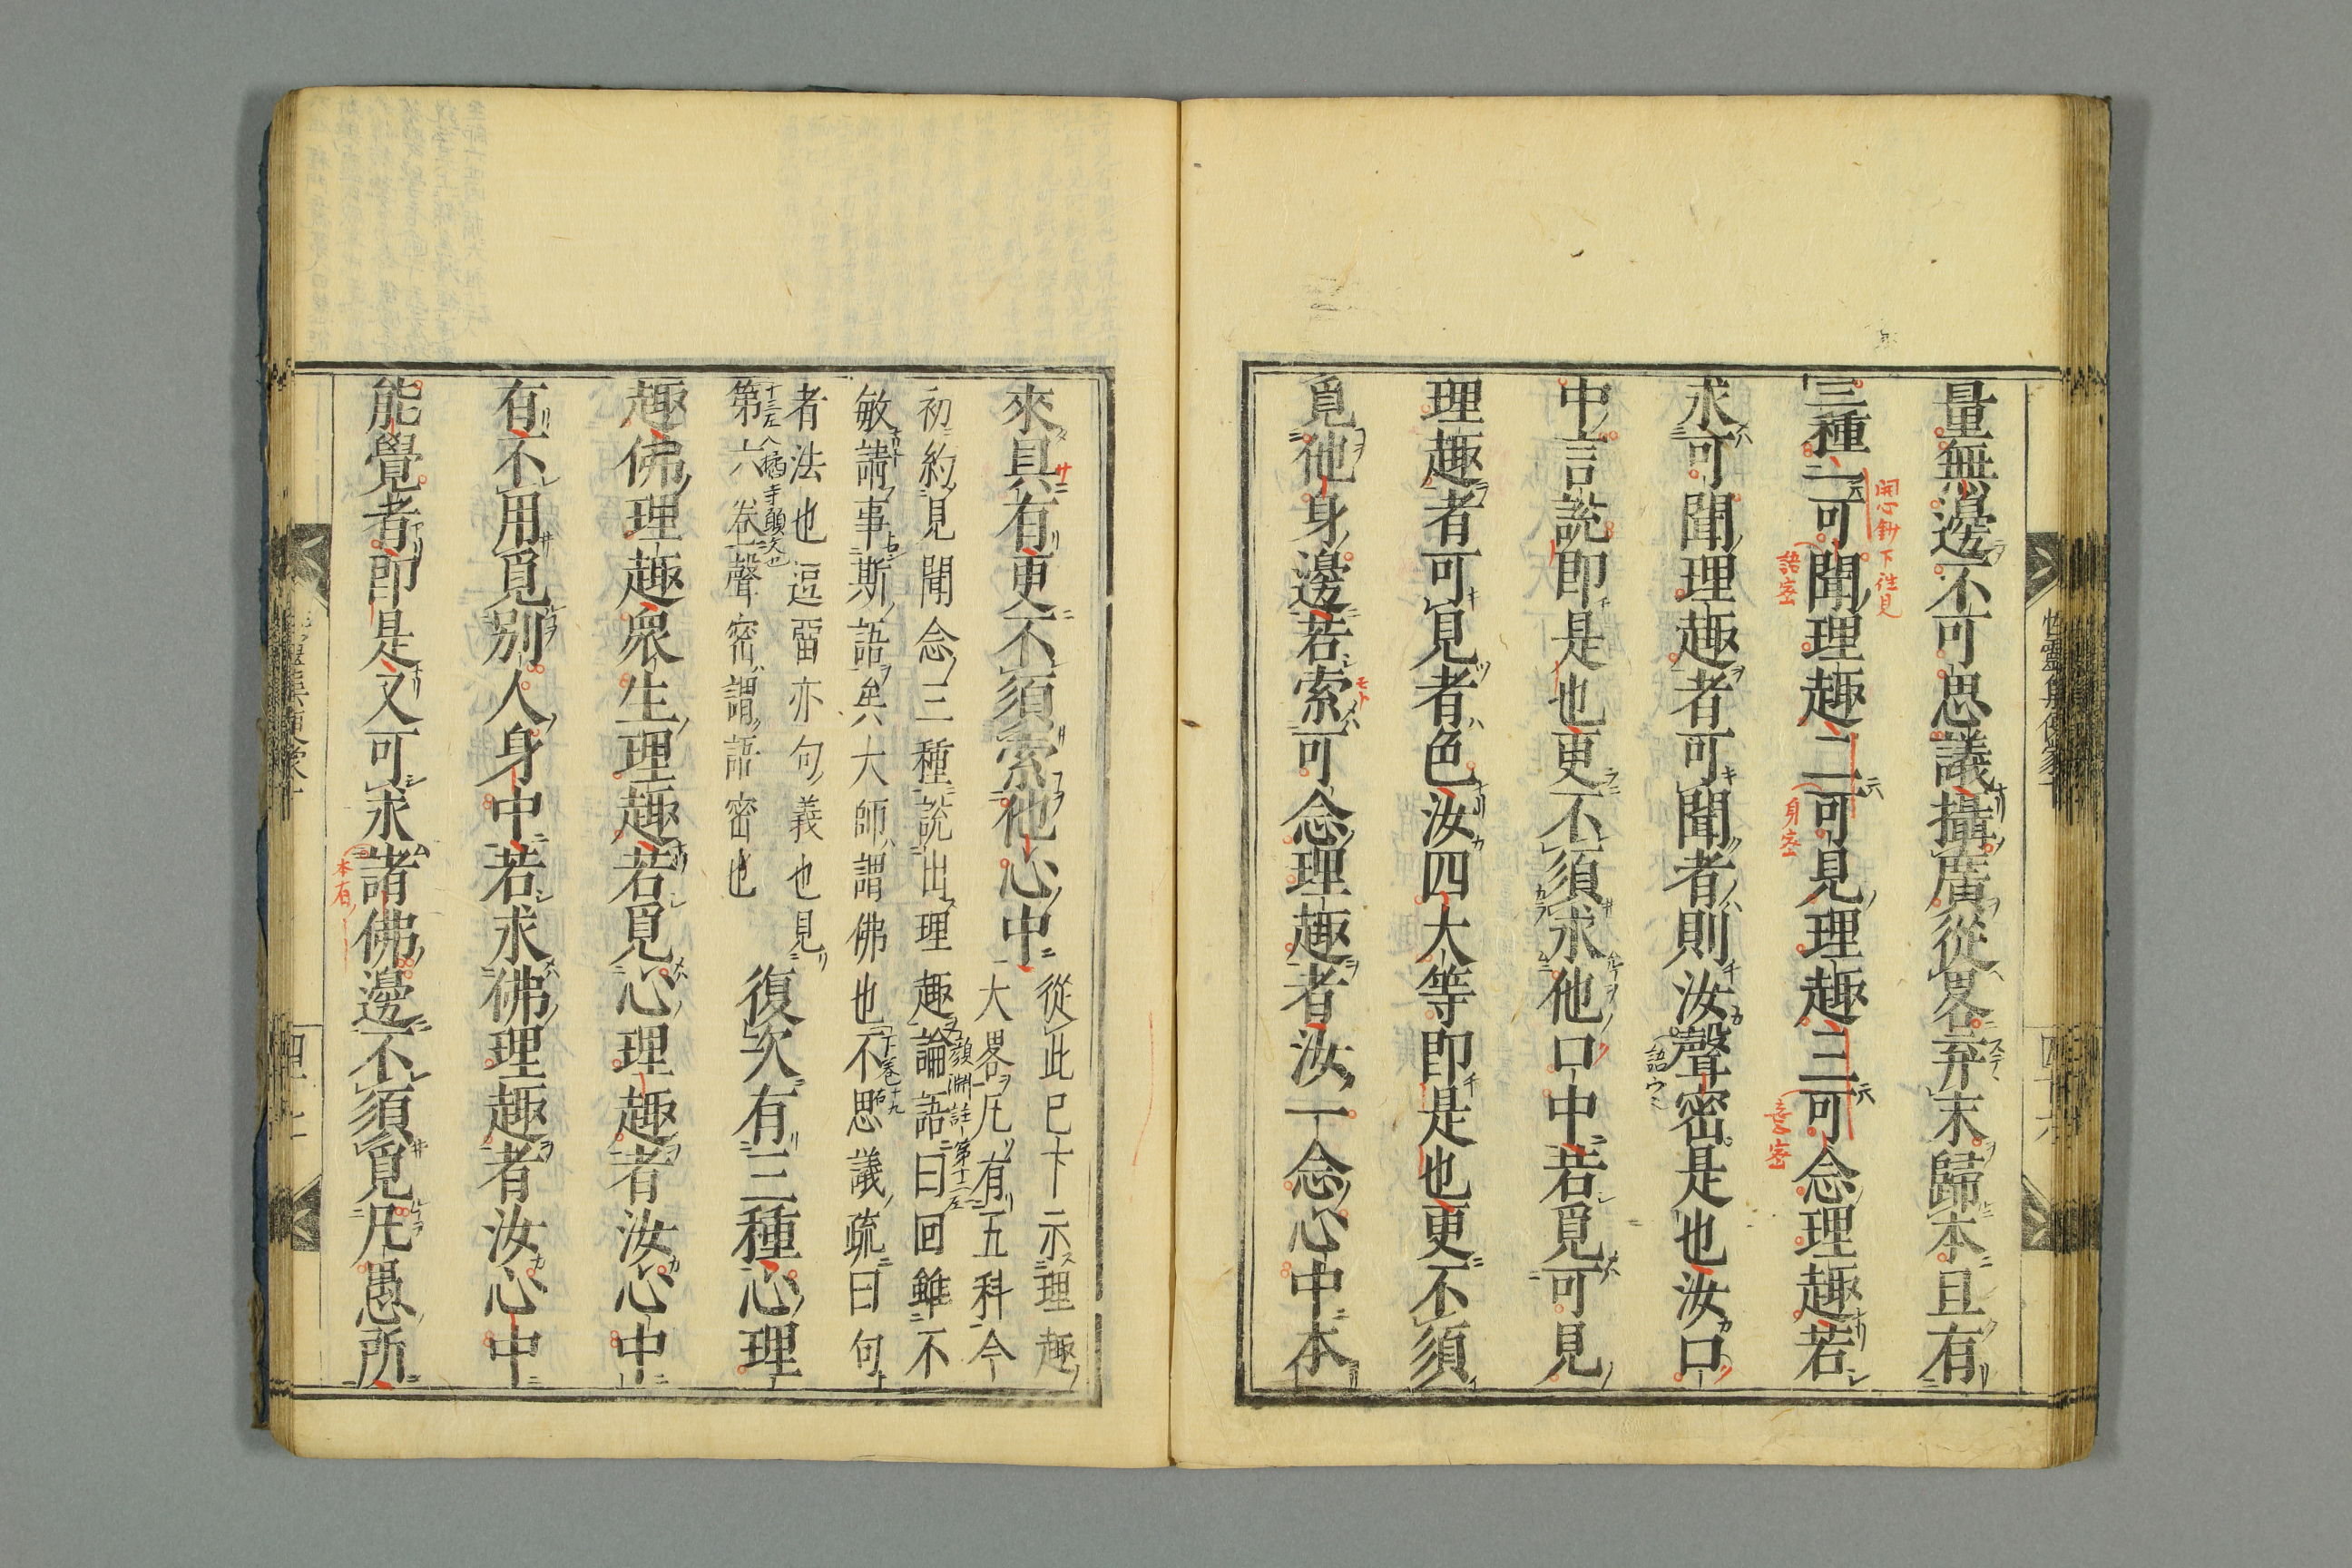 量無邊不可思議攝廣從畧弃末歸本且有
三種一可聞理趣二可見理趣三可念理趣若
求可聞理趣者可聞者則汝聲密是也汝口
中言說即是也更不須求他口中若覓可見
理趣者可見者色汝四大等即是也更不須
覓他身邊若索可念理趣者汝一念心中本
來具有更不須索他心中
從此已下示理趣
大畧凡有五科今
初約見聞念三種說出理趣論語曰回雖不
敏請事斯語矣大師謂佛也不思議疏曰句
者法也逗畱亦句義也見
第六卷聲密謂語密也
復次有三種心理
趣佛理趣衆生理趣若覓心理趣者汝心中
有不用覓別人身中若求佛理趣者汝心中
能覺者即是又可求諸佛邊不須覓凡愚所
開心鈔下往見
語密
身密
意密
本有
顏淵註第十二左
下卷十九右
性靈集便蒙十
四十六
四十七